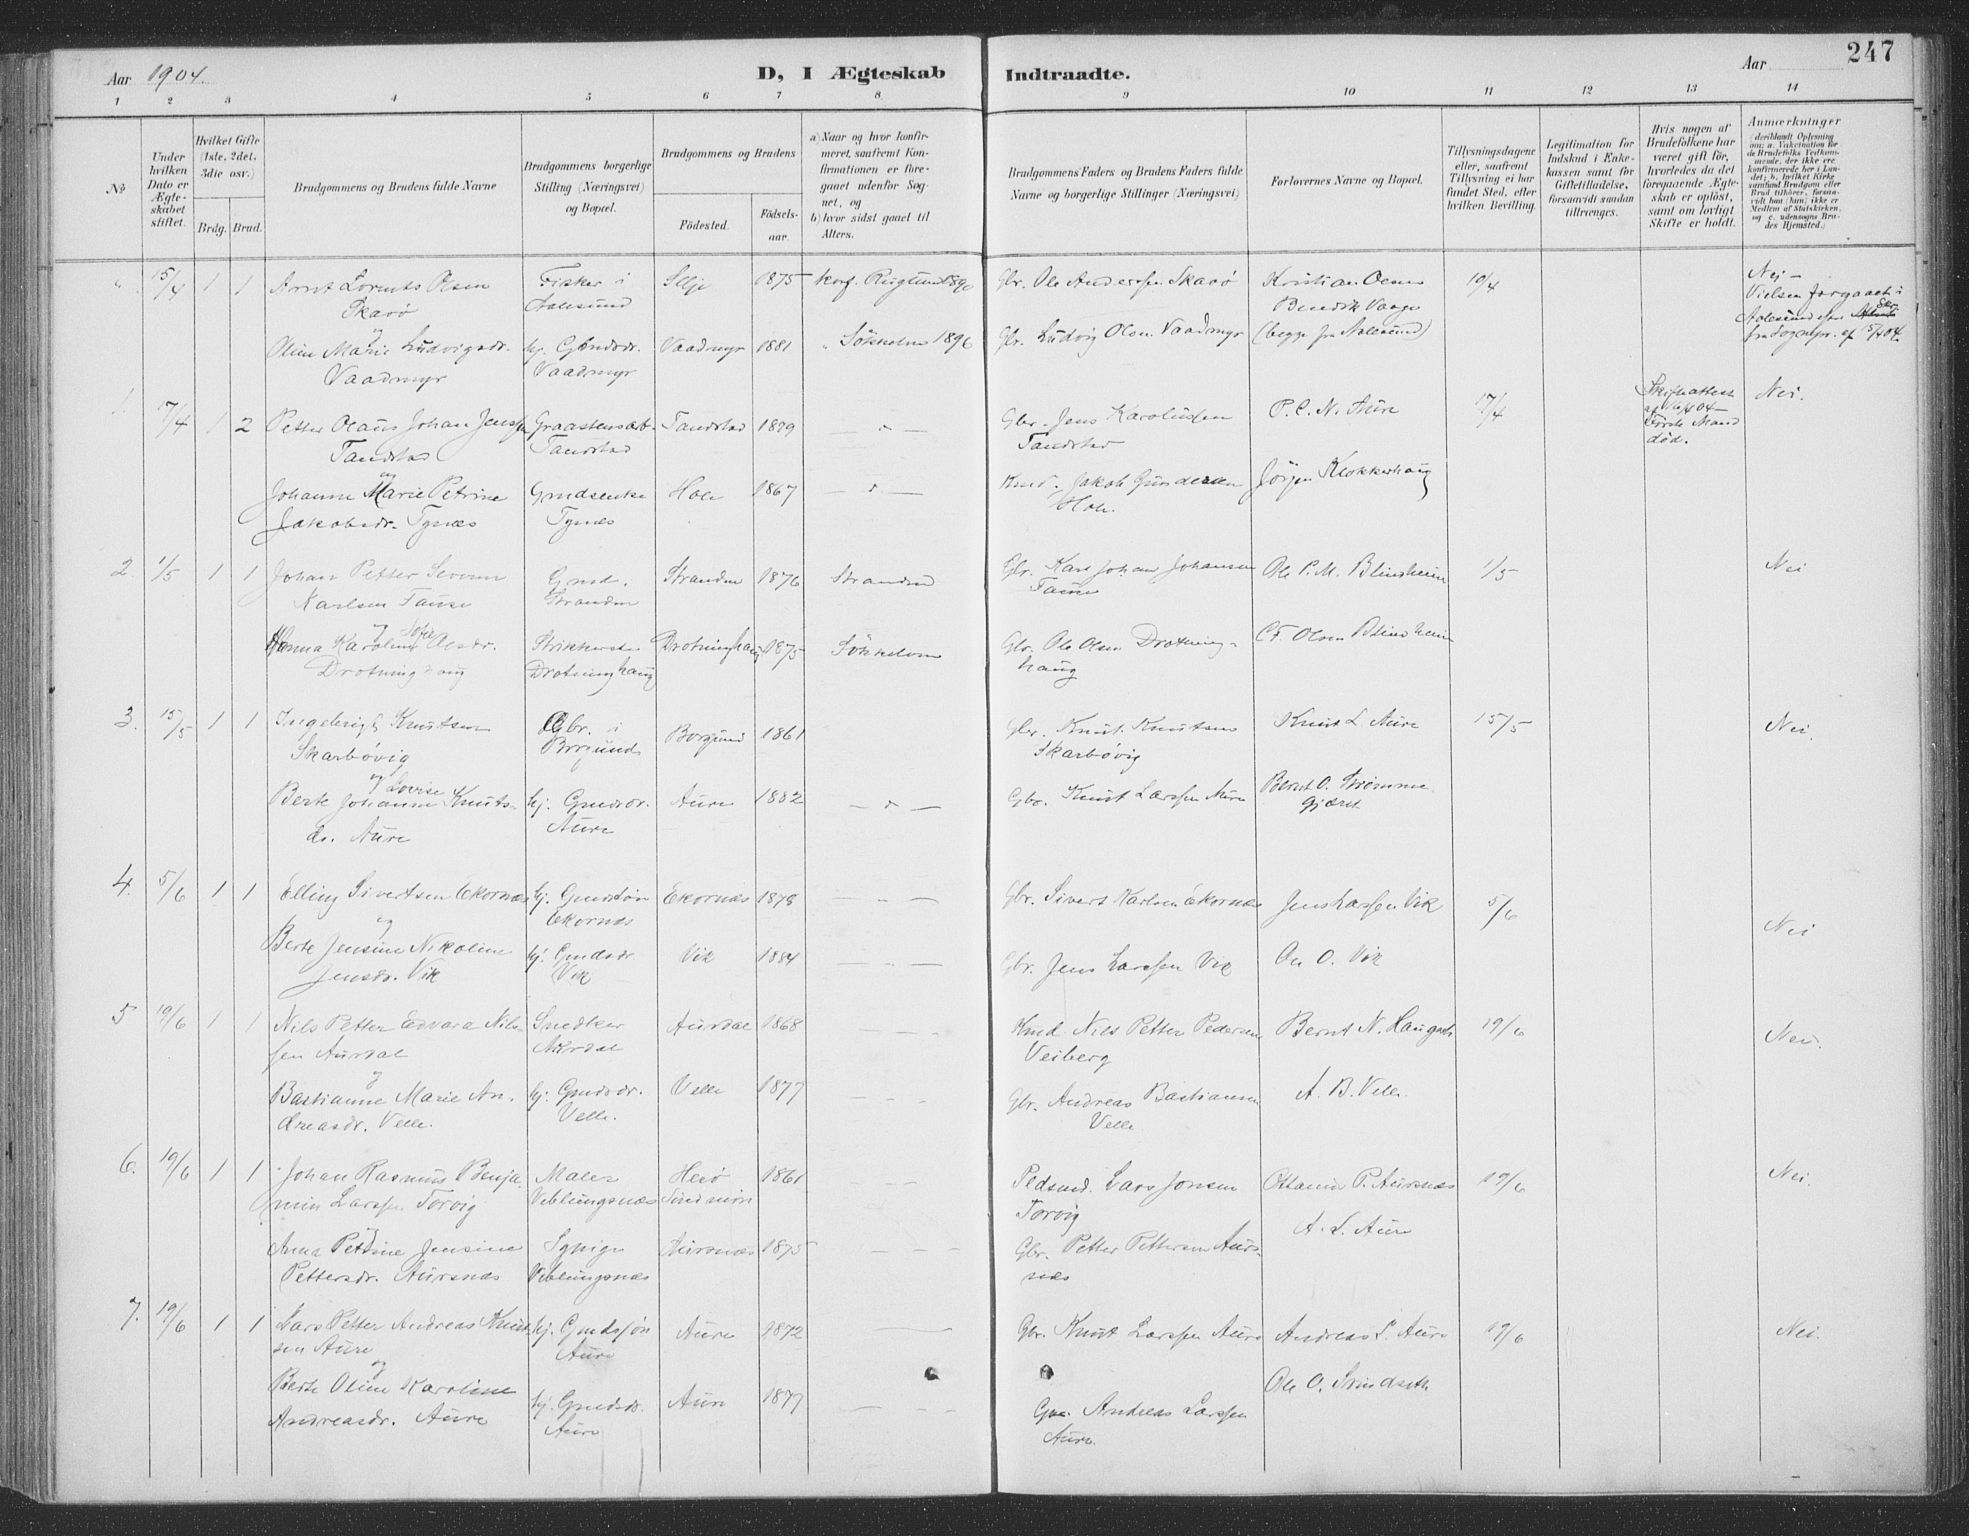 Aar 1904.
D, I Ægteskab
Indtraadte.
Aar
247
1 2 3 4 5 6 7 8. 9 10 11 12 13 14
No
Under hvilken Dato er Ægteskabet stiftet.
Hvilket Gifte (1ste, 2det, 3die osv.)
Brdg. Brud.
Brudgommens og Brudens fulde Navne
Brudgommens borgerlige Stilling (Næringsvei) og Bopæl.
Brudgommens og Brudens
Fødested.
Fødselsaar.
a) Naar og hvor konfirmeret, saafremt Konfirmationen er foregaaet udenfor Sognet, og
b) hvor sidst gaaet til Alters.
Brudgommens Faders og Brudens Faders fulde Navne og borgerlige Stillinger (Næringsvei)
Forlovernes Navne og Bopæl.
Tillysningsdagene eller, saafremt Tillysning ei har fundet Sted, efter hvilken Bevilling.
Legitimation for Indskud i Enkekassen samt for Giftetilladelse, forsaavidt saadan tiltrænges.
Hvis nogen af Brudefolkene har været gift før, hvorledes da det foregaaende Ægteskab er opløst, samt om lovligt Skifte er holdt.
Anmærkninger
15/4 1 1 Arnt Lornts Olsen Skarø
Fisker i Aalesund
Selje 1875 Konf. 1890
Gbr. Ole Anderssen Skarø
Kristian Oen
Bendik Vaage
(begge fra Aalesund)
10/4
Nej –
Vielsen foregaaet i Aalesund
og
Oline Marie Ludvigsdr. Vaadmyr
hj. Gbrdsdr. Vaadmyr
Vaadmyr 1881 " Søkkelven 1896
Gbr. Ludvig Olsen Vaadmyr
1. 17/4 1 2 Petter Olaus Johan Jenssen Tandstad
Graastensarb. Tandstad
Tandstad 1879 — " —
Gbr. Jens Karolussen Tandstad
P. C. N. Aure
17/4
Skifteattest
første Mand død.
Nei.
og
Johanne Marie Petrine Jakobsdr. Tynes
Gmdsenke Tynes
Hole 1867 — " —
Kmd. Jakob Gundersen Hole.
Jørgen Klokkerhaug
2. 1/5 1 1 Johan Petter Severin Karlsen Tause
Gmd. Stranden
Stranden 1876 Stranden
Gbr. Karl Johan Johansen Tause
Ole P. M. Blindheim
1/5
Nei
og
Hanna Karoline Sofie Olsdr. Drotninghaug
Strikkerske Drotninghaug
Drotninghaug 1875 Søkkelven
Gbr. Ole Olsen Drotninghaug
C F Olsen Blindheim
3. 15/5 1 1 Ingebrigt Knutsen Skarbøvig
Gbr. i Borgund
Borgund 1861
Gbr. Knut Knutsen Skarbøvig
Knut L. Aure
15/5
Nei.
og
Berte Johanne Lovise Knutsdr. Aure
hj. Gmdsdr. Aure
Aure 1882 — " —
Gbr. Knut Larssen Aure
Bernt O. Strømmegjæret
4. 5/6 1 1 Elling Sivertsen Ekornæs
hj. Gmdssøn Ekornæs
Ekornæs 1878 — " —
Gbr. Sivert Karlsen Ekornæs
Jens Larssen Vik
5/6
Nei
og
Berte Jensine Nikoline Jensdr. Vik
hj. Gmdsdr. Vik
Vik 1884 — " —
Gbr. Jens Larssen Vik
Ole O. Vik
5 19/6 1 1 Nils Petter Edvard Nilssen Aurdal
Snedker Aurdal
Aurdal 1868 — " —
Kmd. Nils Petter Pedersen Veiberg
Bernt N. Haugseth
19/6
Nei.
og
Bastianne Marie Andreasdr. Velle.
hj. Gmdsdr. Velle.
Velle 1877 — " —
Gbr. Andreas Bastiansen Velle
A. B. Velle.
6. 19/6 1 1 Johan Rasmus Benjamin Larssen Torvig
Maler Veblungsnæs
Herø Søndmør 1861
Lars Jonsen Torvig
Ottamin P. Aursnæs
19/6
Nei.
og
Anna Petrine Jensine Pettersdr. Aursnæs
Sypige Veblungsnæs
Aursnæs 1875 — " —
Gbr. Petter Pettersen Aursnæs
A. L. Aure
7. 19/6 1 1 Lars Petter Andreas Knutsen Aure
hj. Gmdssøn Aure
Aure 1872
Gbr. Knut Larssen Aure
Andreas L. Aure
19/6
Nei.
og
Berte Oline Karoline Andreasdr. Aure
hj. Gmdsdr. Aure
Aure 1877 — " —
Gbr. Andreas Larssen Aure.
Ole O. Svindseth